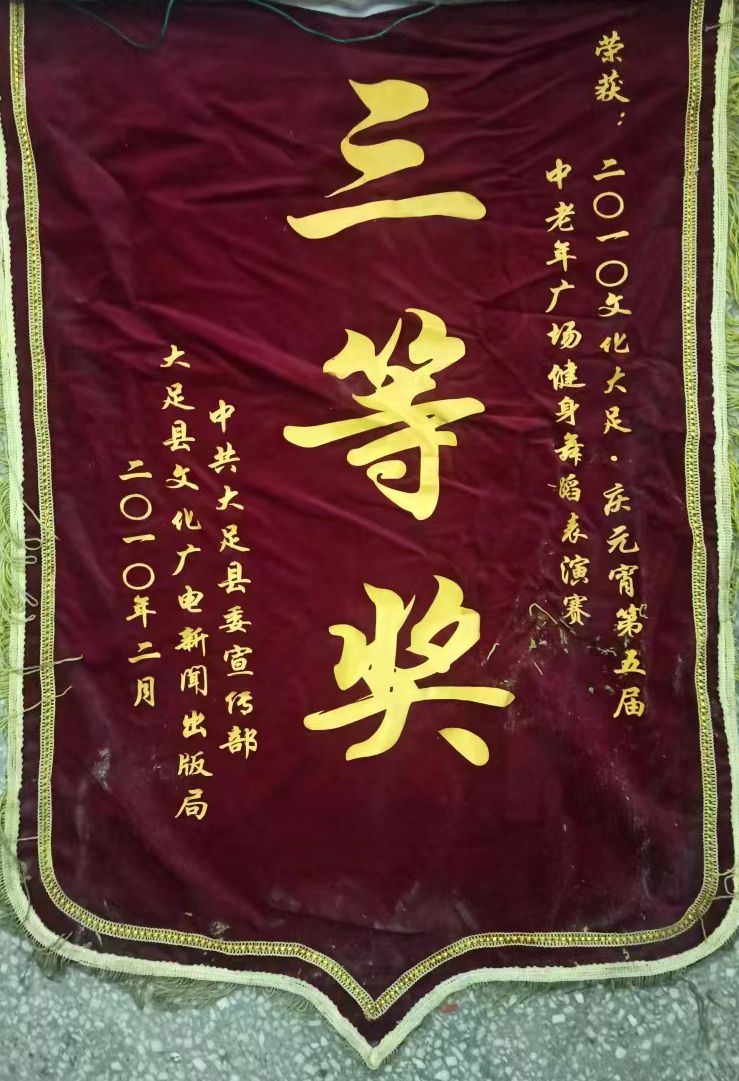 荣获：
二〇一〇文化大足·庆元宵第五届
中老年广场健身舞蹈表演赛
三等奖
中共大足县委宣传部
大足县文化广电新闻出版局
二〇一〇年二月